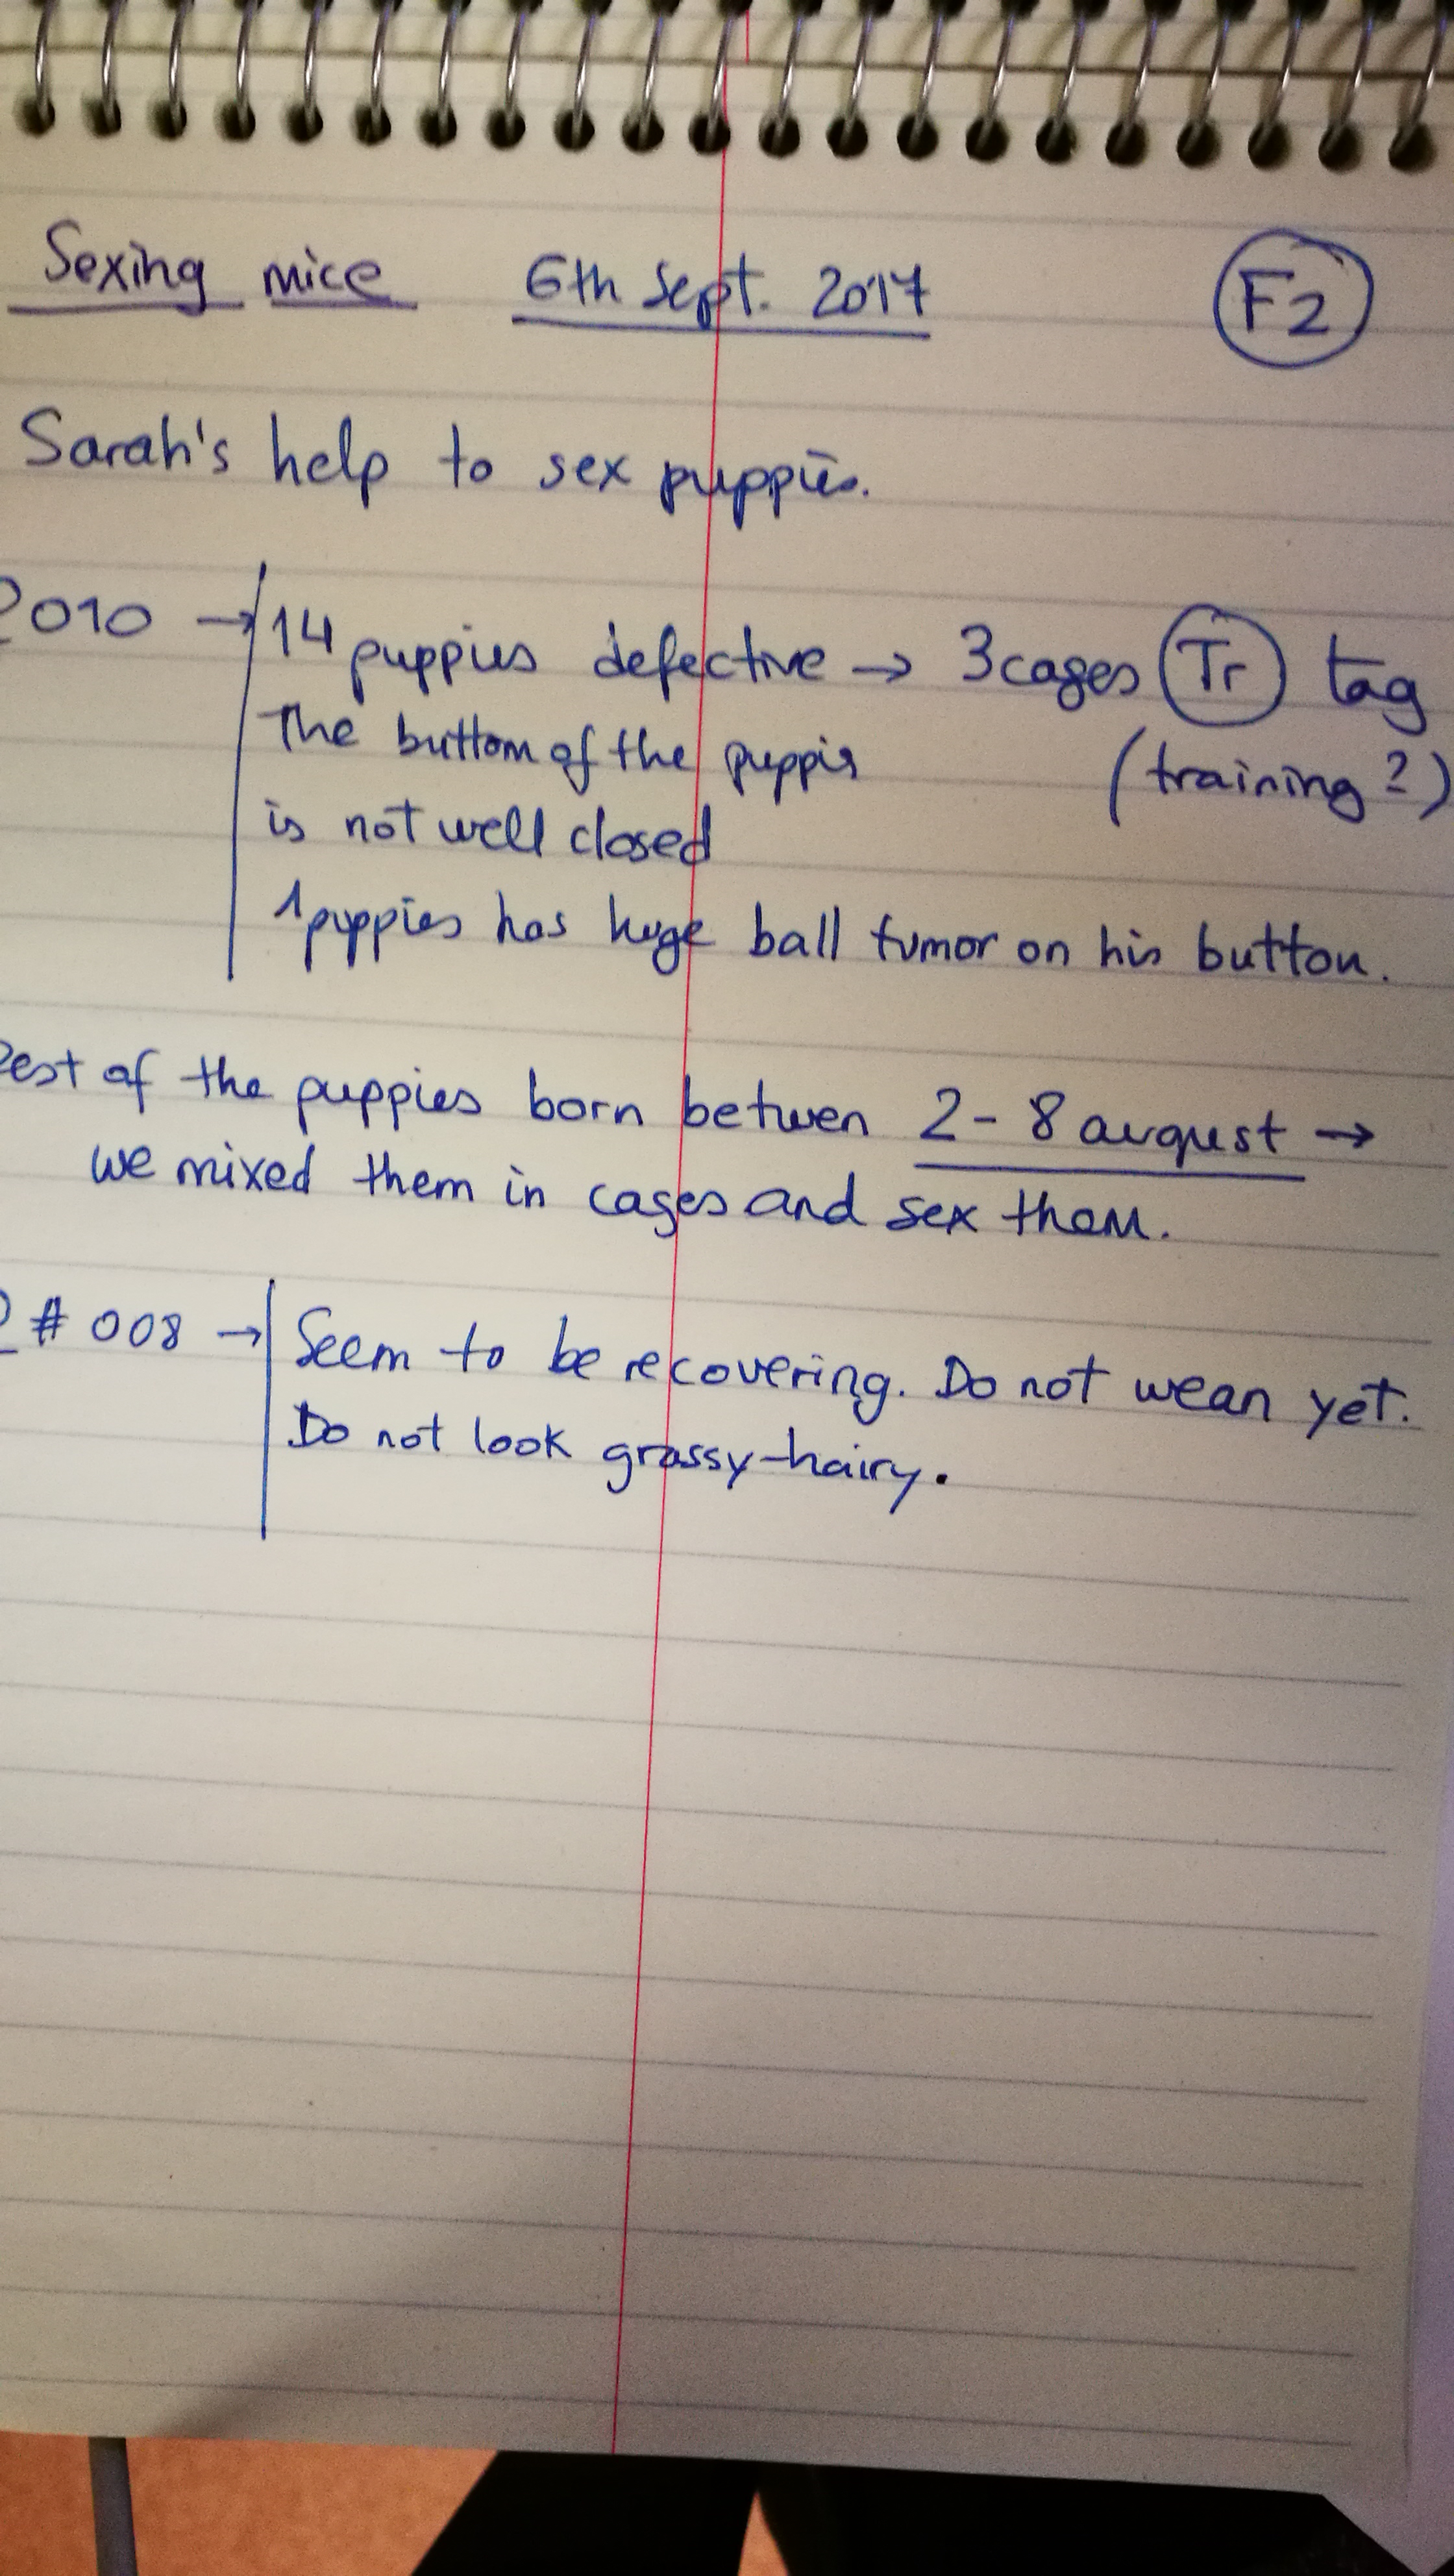 Sexing mice 6th Sept. 2017 F2
Sarah's help to sex puppies.
2010 → 14 puppies defective → 3 cages Tr tag
The buttom of the puppis (training?)
is not well closed
1 puppies has huge ball tumor on his button.
Rest of the puppies born betwen 2-8 august →
we mixed them in cages and sex them.
# 008 → Seem to be recovering. Do not wean yet.
Do not look grassy-hairy.